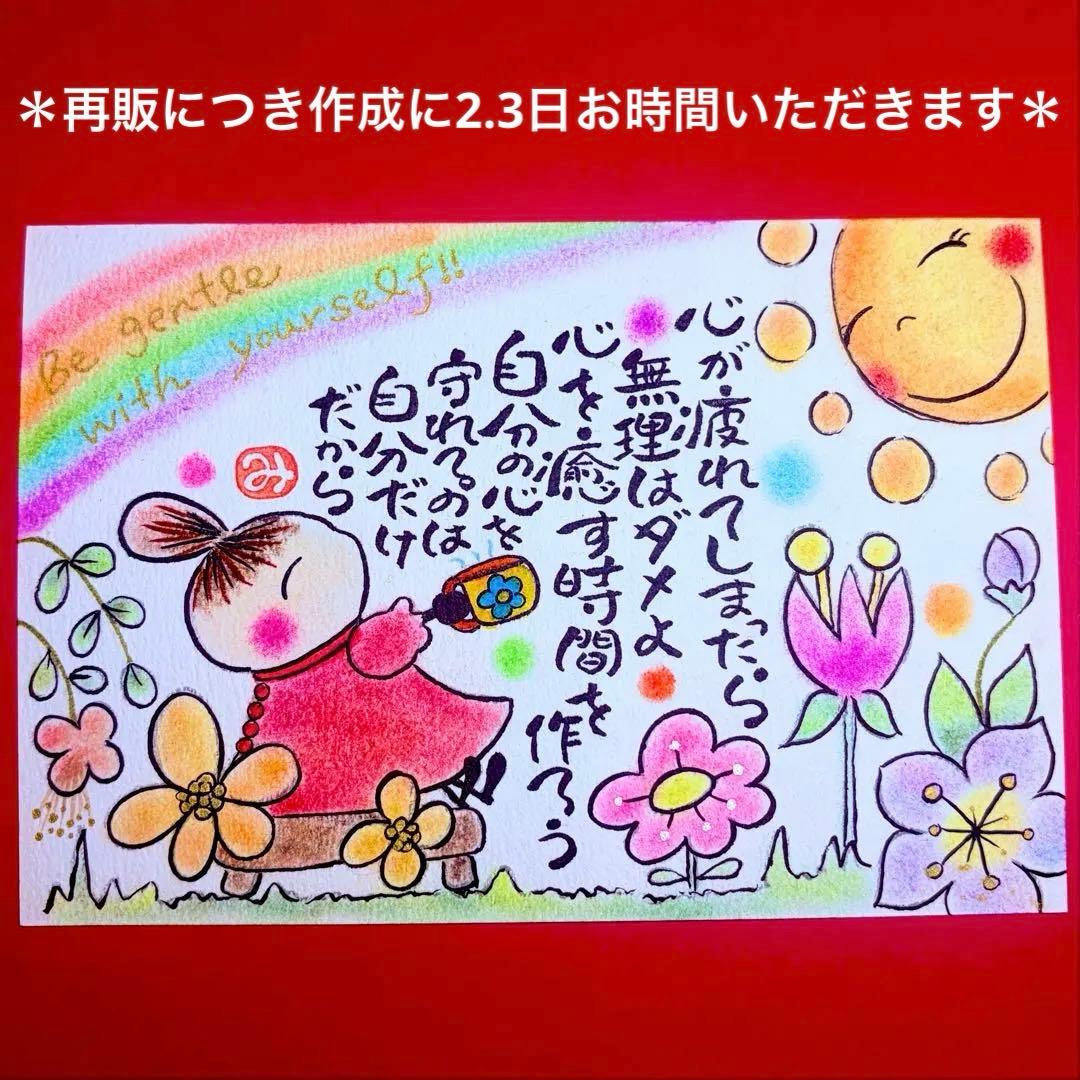 ＊再販につき作成に2.3日お時間いただきます＊
Be gentle
with yourself!!
心が疲れてしまったら
無理はダメよ
心を癒す時間を作ろう
自分の心を
守れるのは
自分だけ
だから
み